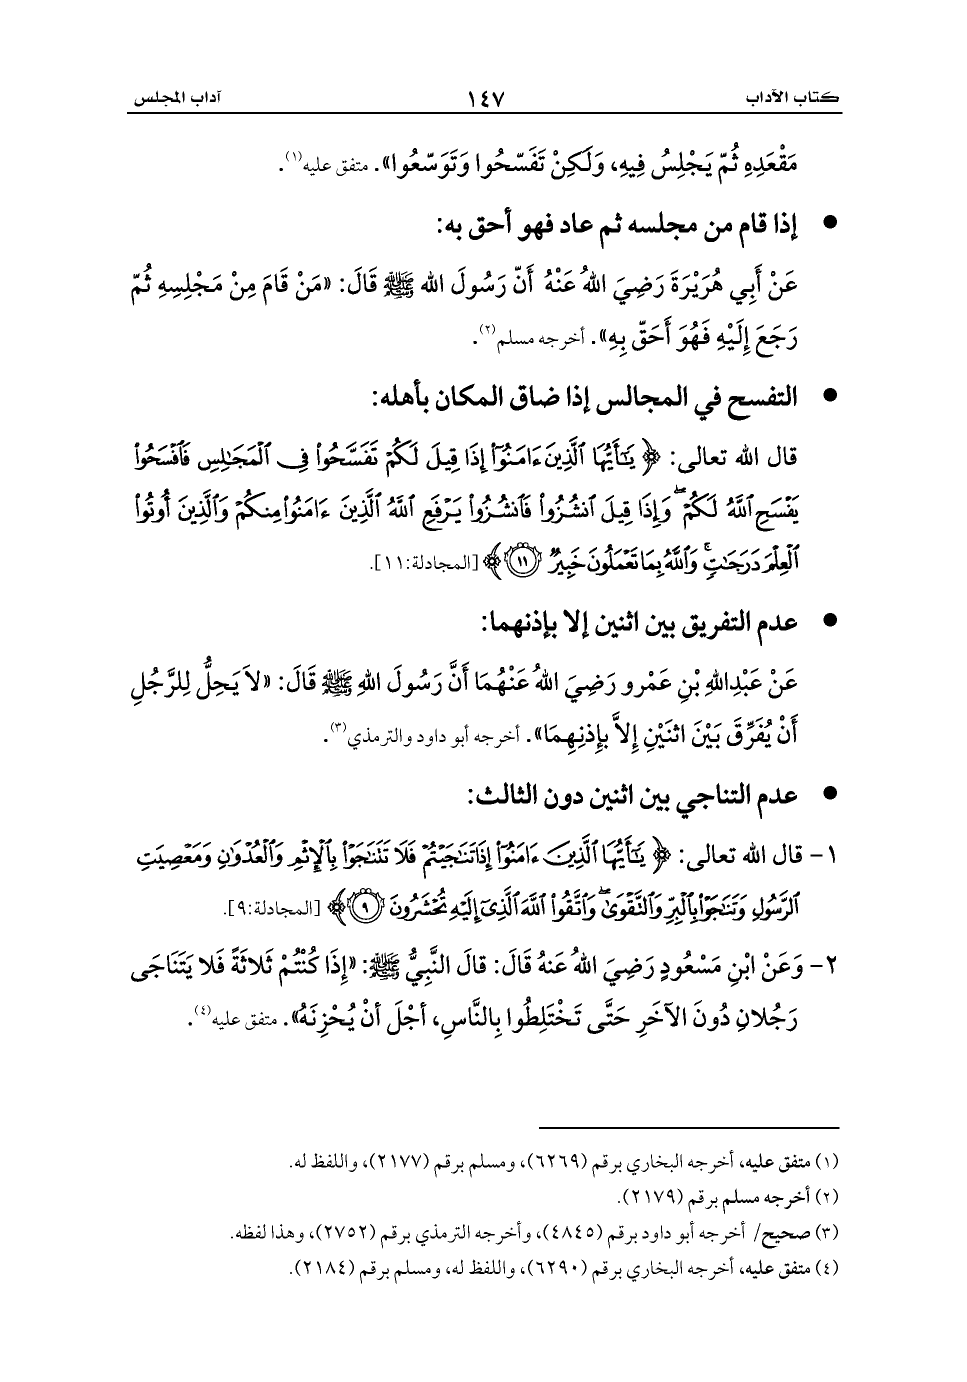 كتاب الآداب ١٤٧ آداب المجلس
مَقْعَدِهِ ثُمّ يَجْلِسُ فِيهِ، وَلَكِنْ تَفَسّحُوا وَتَوَسّعُوا». متفق عليه(١).
• إذا قام من مجلسه ثم عاد فهو أحق به:
عَنْ أَبِي هُرَيْرَةَ رَضِيَ اللهُ عَنْهُ أَنّ رَسُولَ الله ﷺ قَالَ: «مَنْ قَامَ مِنْ مَجْلِسِهِ ثُمّ
رَجَعَ إِلَيْهِ فَهُوَ أَحَقّ بِهِ». أخرجه مسلم(٢).
• التفسح في المجالس إذا ضاق المكان بأهله:
قال الله تعالى: ﴿يَٰٓأَيُّهَا ٱلَّذِينَ ءَامَنُوٓاْ إِذَا قِيلَ لَكُمۡ تَفَسَّحُواْ فِي ٱلۡمَجَٰلِسِ فَٱفۡسَحُواْ
يَفۡسَحِ ٱللَّهُ لَكُمۡۖ وَإِذَا قِيلَ ٱنشُزُواْ فَٱنشُزُواْ يَرۡفَعِ ٱللَّهُ ٱلَّذِينَ ءَامَنُواْ مِنكُمۡ وَٱلَّذِينَ أُوتُواْ
ٱلۡعِلۡمَ دَرَجَٰتٖۚ وَٱللَّهُ بِمَا تَعۡمَلُونَ خَبِيرٞ ١١﴾ [المجادلة:١١].
• عدم التفريق بين اثنين إلا بإذنهما:
عَنْ عَبْدِاللهِ بْنِ عَمْرو رَضِيَ اللهُ عَنْهُمَا أَنَّ رَسُولَ اللهِ ﷺ قَالَ: «لاَ يَحِلُّ لِلرَّجُلِ
أَنْ يُفَرِّقَ بَيْنَ اثنَيْنِ إِلاَّ بِإذنِهِمَا». أخرجه أبو داود والترمذي(٣).
• عدم التناجي بين اثنين دون الثالث:
١- قال الله تعالى: ﴿يَٰٓأَيُّهَا ٱلَّذِينَ ءَامَنُوٓاْ إِذَا تَنَٰجَيۡتُمۡ فَلَا تَتَنَٰجَوۡاْ بِٱلۡإِثۡمِ وَٱلۡعُدۡوَٰنِ وَمَعۡصِيَتِ
ٱلرَّسُولِ وَتَنَٰجَوۡاْ بِٱلۡبِرِّ وَٱلتَّقۡوَىٰۖ وَٱتَّقُواْ ٱللَّهَ ٱلَّذِيٓ إِلَيۡهِ تُحۡشَرُونَ ٩﴾ [المجادلة:٩].
٢- وَعَنْ ابْنِ مَسْعُودٍ رَضِيَ اللهُ عَنهُ قَالَ: قالَ النَّبِيُّ ﷺ: «إِذَا كُنْتُمْ ثَلاثَةً فَلا يَتَنَاجَى
رَجُلانِ دُونَ الآخَرِ حَتَّى تَخْتَلِطُوا بِالنَّاسِ، أجْلَ أنْ يُحْزِنَهُ». متفق عليه(٤).
(١) متفق عليه، أخرجه البخاري برقم (٦٢٦٩)، ومسلم برقم (٢١٧٧)، واللفظ له.
(٢) أخرجه مسلم برقم (٢١٧٩).
(٣) صحيح/ أخرجه أبو داود برقم (٤٨٤٥)، وأخرجه الترمذي برقم (٢٧٥٢)، وهذا لفظه.
(٤) متفق عليه، أخرجه البخاري برقم (٦٢٩٠)، واللفظ له، ومسلم برقم (٢١٨٤).